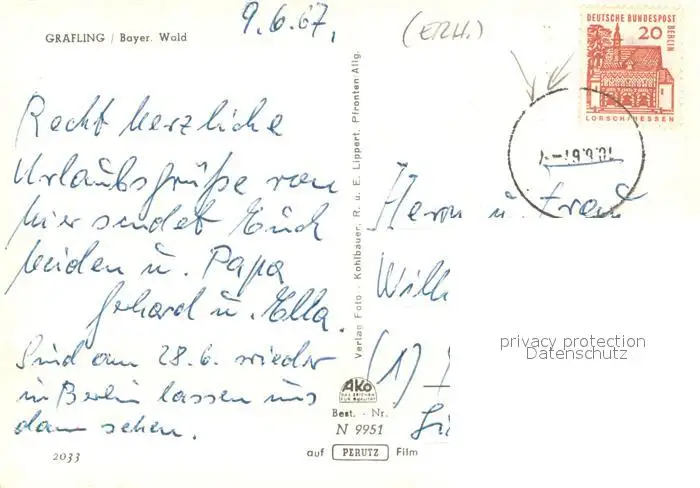 GRAFLING / Bayer. Wald
9.6.67,
(ERH.)
DEUTSCHE BUNDESPOST
BERLIN
20
LORSCH/HESSEN
10.6.67
Recht herzliche
Urlaubsgrüße von
hier sendet Euch
beiden u. Papa
Gerhard u. Ella.
Sind am 28.6. wieder
in Berlin lassen uns
dann sehen.
Verlag Foto - Kohlbauer, R. u. E. Lippert, Pfronten Allg.
Herrn u. Frau
Wilh
(1)
privacy protection
Datenschutz
AKO
DAS ZEICHEN
FÜR QUALITÄT
Best. - Nr.
N 9951
2033
auf PERUTZ Film